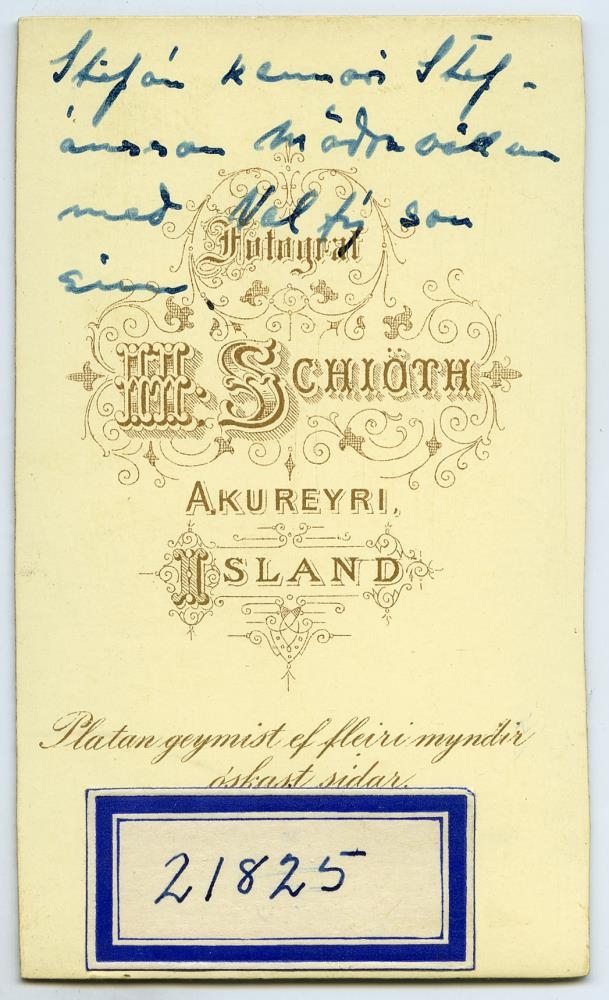 Stefán kennari Stef-
ánsson Möðruvöllum
með Valtý son
sinn.
Fotograf
H: Schiöth
Akureyri,
Island
Platan geymist ef fleiri myndir
óskast sidar.
21825